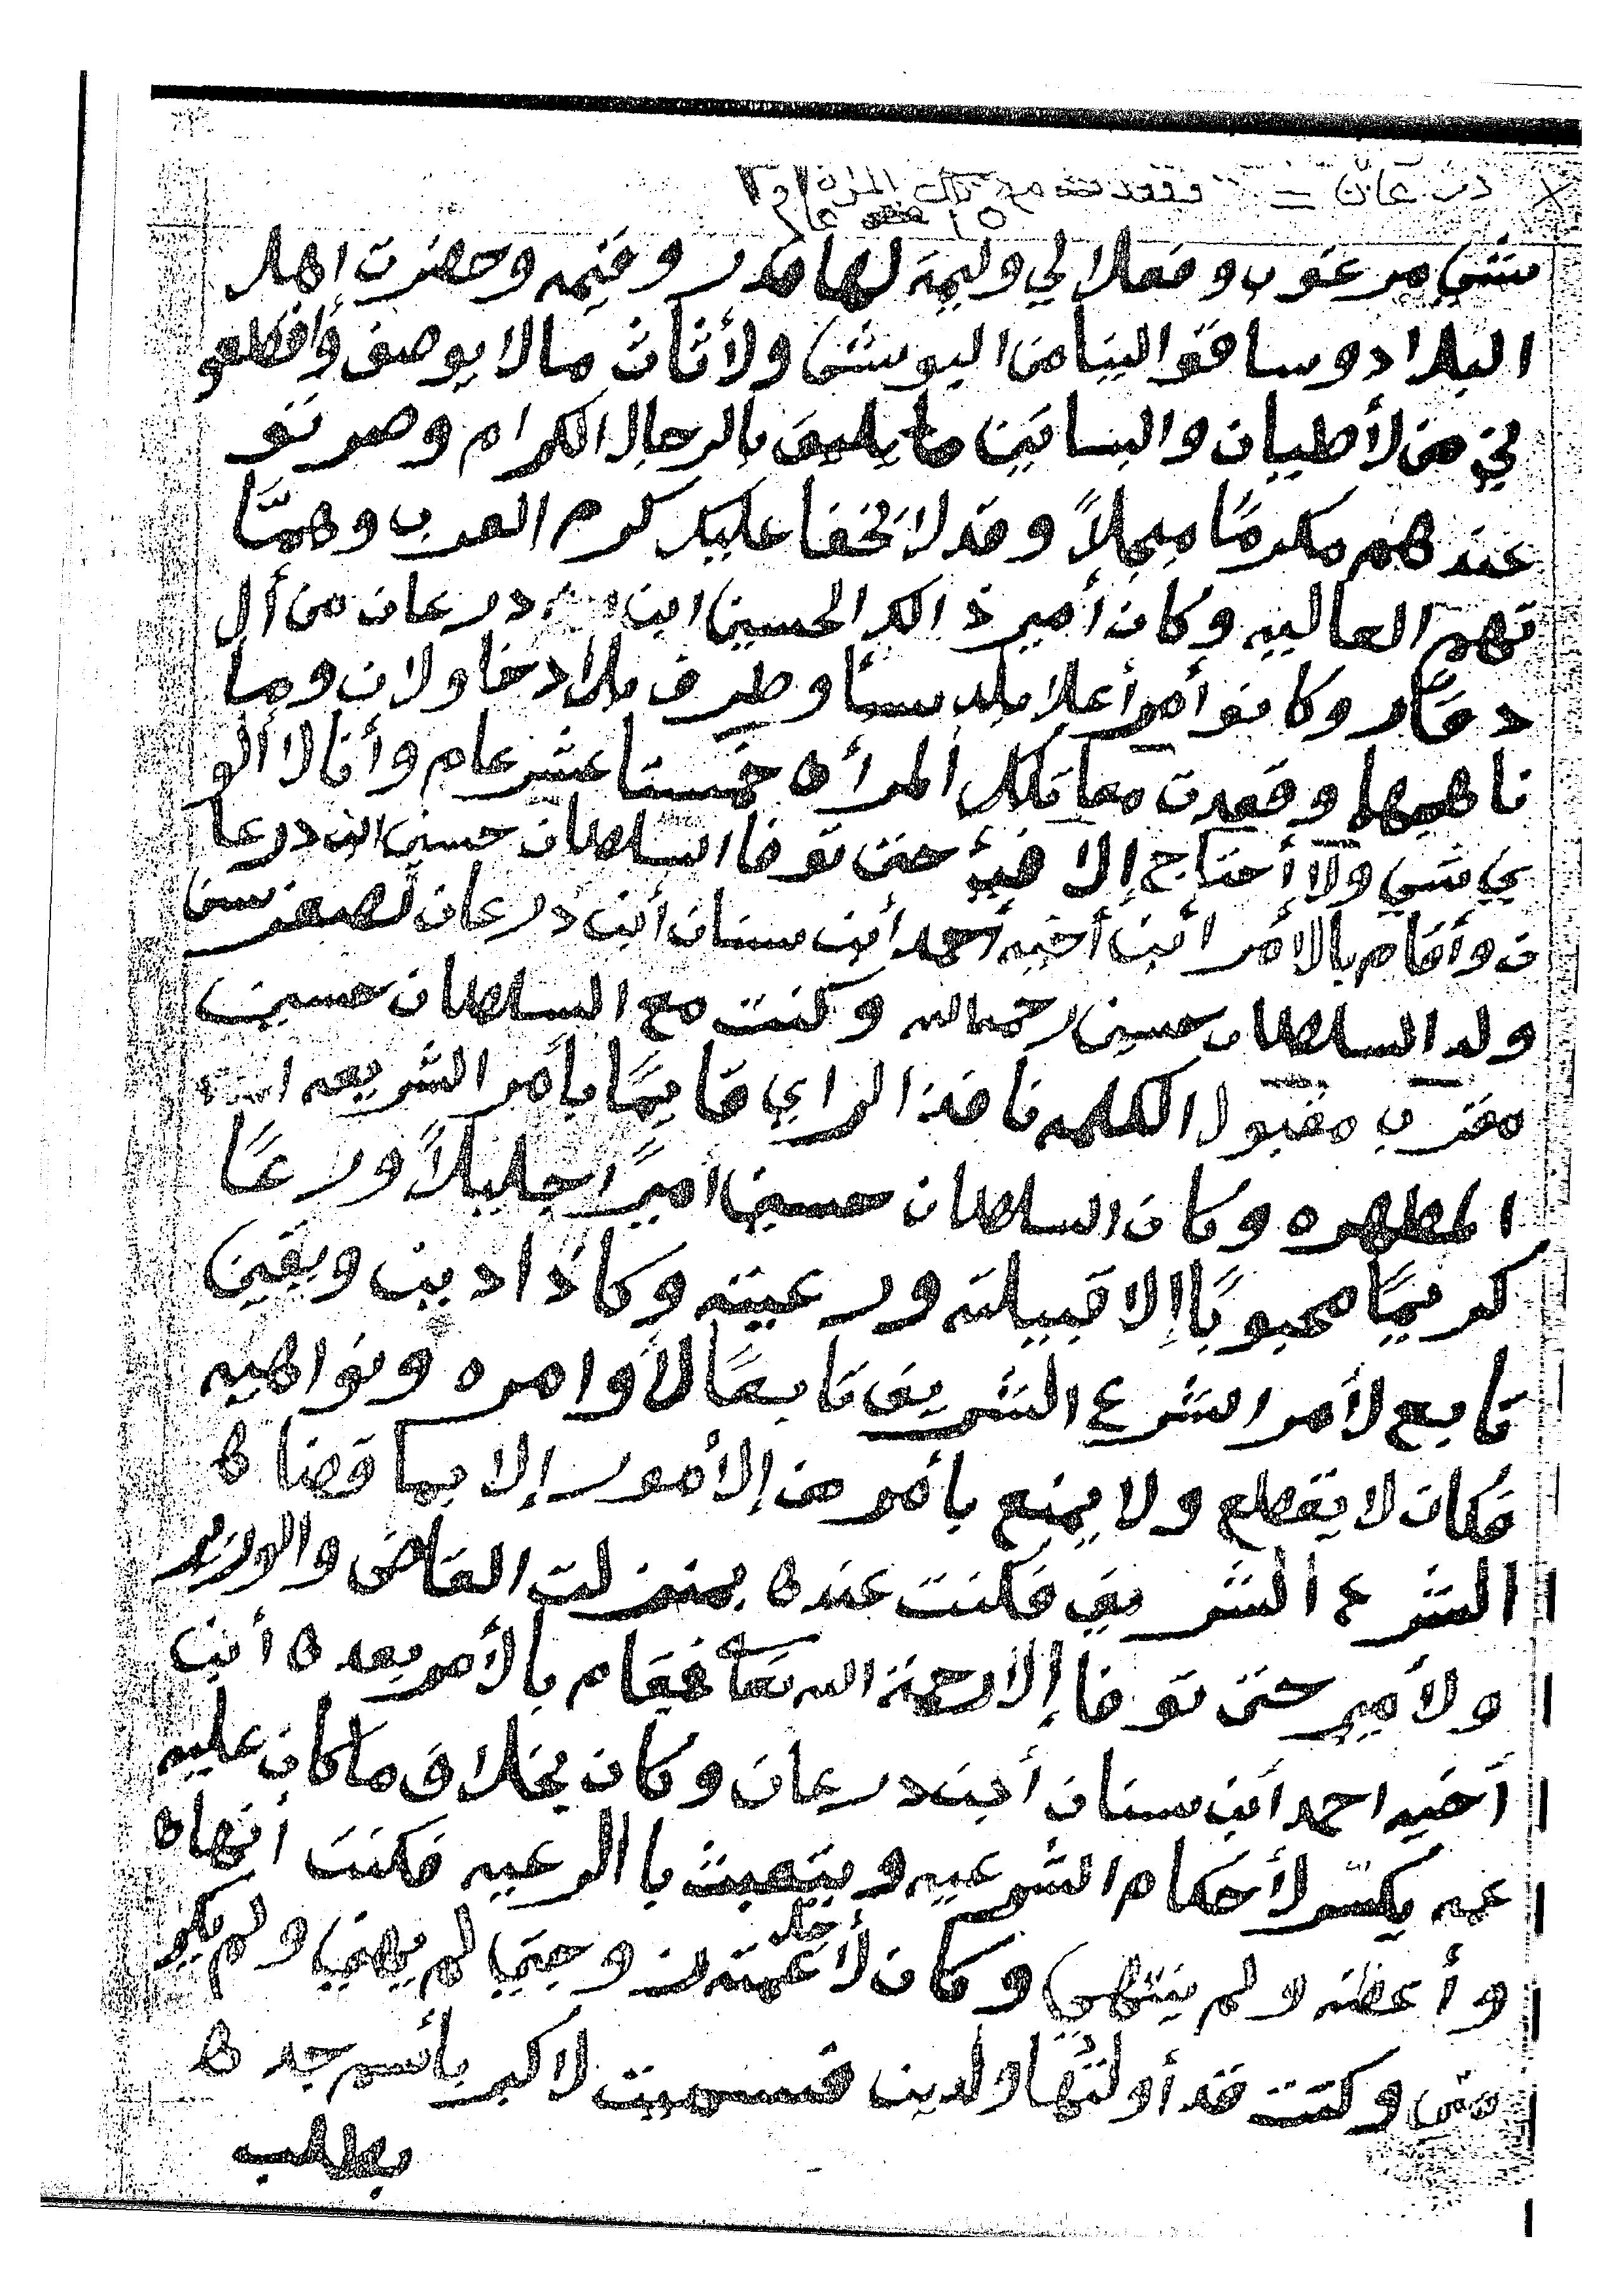 × درعان = فقعدت مع تلك المرة
شي مرغوب وفعلا لي وليمة لها قدر وقيمه وحضرت اهل
البلاد وساقو الينا من البوش ولأثاث مالا يوصف وأفطعو
لي من لأطيان والبساتين ما يليق بالرجال الكرام وصرتو
عندهم مكرمًا مبجلاً وقد لا يخفا عليك كرم العرب وهمّا
تهم العاليه وكان أمير ذالك الحسين ابن درعان من أل
دغّار وكانو أمرأ علا بلد سبأ وطرف بلاد خاولان وما
ناهيها وقعدت معا تلك المرأه خمستا عشر عام وأنا لا ألو
ي شي ولا أحتاج إلا فيء حتى توفا السلطان حسين ابن درعا
ن وأقام بالامر أبن أخيه أحمد أبن سنان أبن درعان لصغر سن
ولد السلطان حسين رحمه الله وكنت مع السلطان حسين
مقرب مقبول الكلمه نافذ الراي قايمًا بأمر الشريعه
المطهره وكان السلطان حسين اميرًا جليلاً ورعًا
كريمًا محبوبًا إلا قبيلته ورعيته وكا ذا دين ويقين
تابع لأمر الشرع الشريف تابعًا لأوامره ونواهيه
فكان لا يقطع ولا يمنع بأمر من إلأمور إلا بما قضاه
الشرع الشريف فكنت عنده بمنزلت القاضي والوزير
ولأمير حتى توفا إلا رحمة الله تعا فقام بالأمر بعده أبن
أخيه احمد أبن سنان أبن درعان وكان بخلاف ما كان عليه
عمه يكسر لأحكام الشرعيه ويتعبث باالرعيه فكنت أنهاه
وأعظه ولم ينتهي وكان لأجل عمته زوجتي لم يهني ولم يكر
مني وكنت قد أولتها ولدين فسميت لاكبر بأسم جده
بطلب